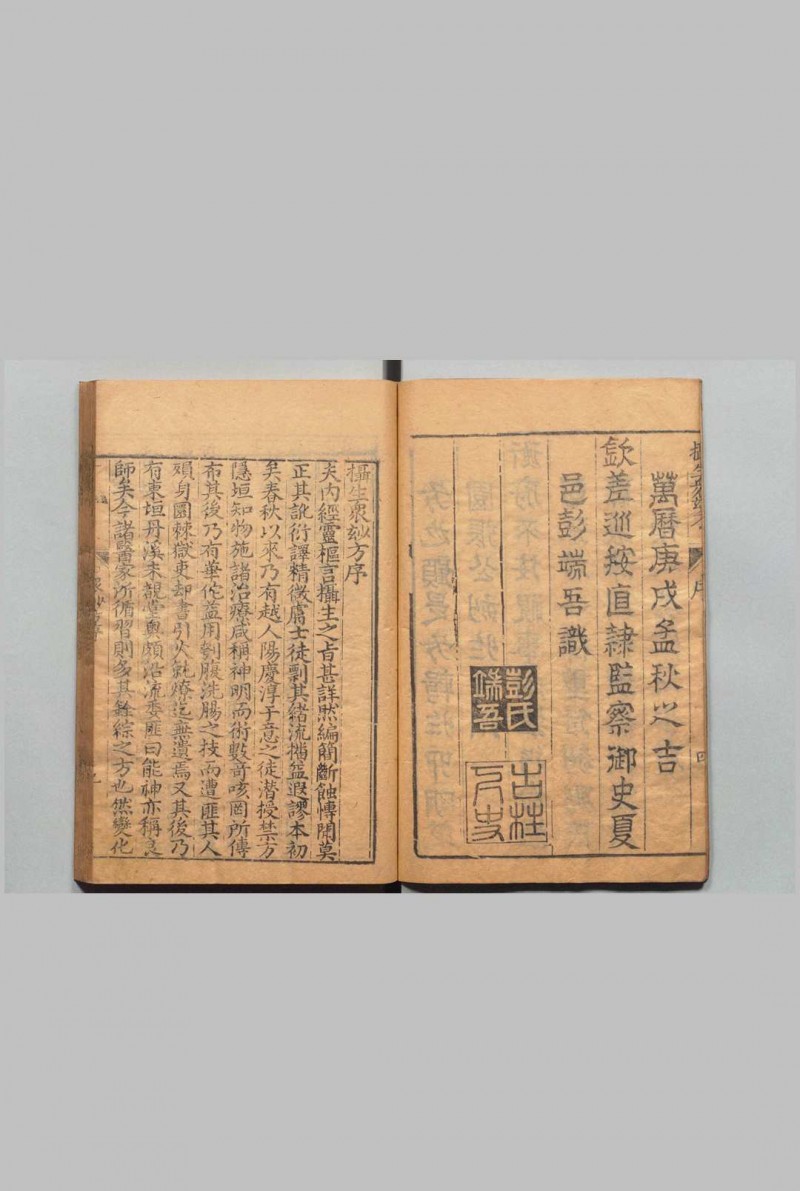 萬曆庚戌孟秋之吉
欽差巡按直隸監察御史夏
邑彭端吾識
彭氏端吾
古柱
攝生眾妙方序
夫內經靈樞言攝生之旨甚詳然編簡斷蝕傳閱莫
正其訛衍譯精微膚士徒剽其緒流擂益遐謬本初
矣春秋以來乃有越人陽慶淳于意之徒潛授禁方
隱垣知物施諸治療咸稱神明而術數音咳罔所傳
布其後乃有華佗益用刳腹浣腸之技而遭匪其人
殞身圜棘獄吏却書引火瓻燎迄無遺焉又其後乃
有東垣丹溪未覩堂奧頗沿流委匪曰能神亦稱良
師矣今諸醫家所循習則多其餘綜之方也然變化